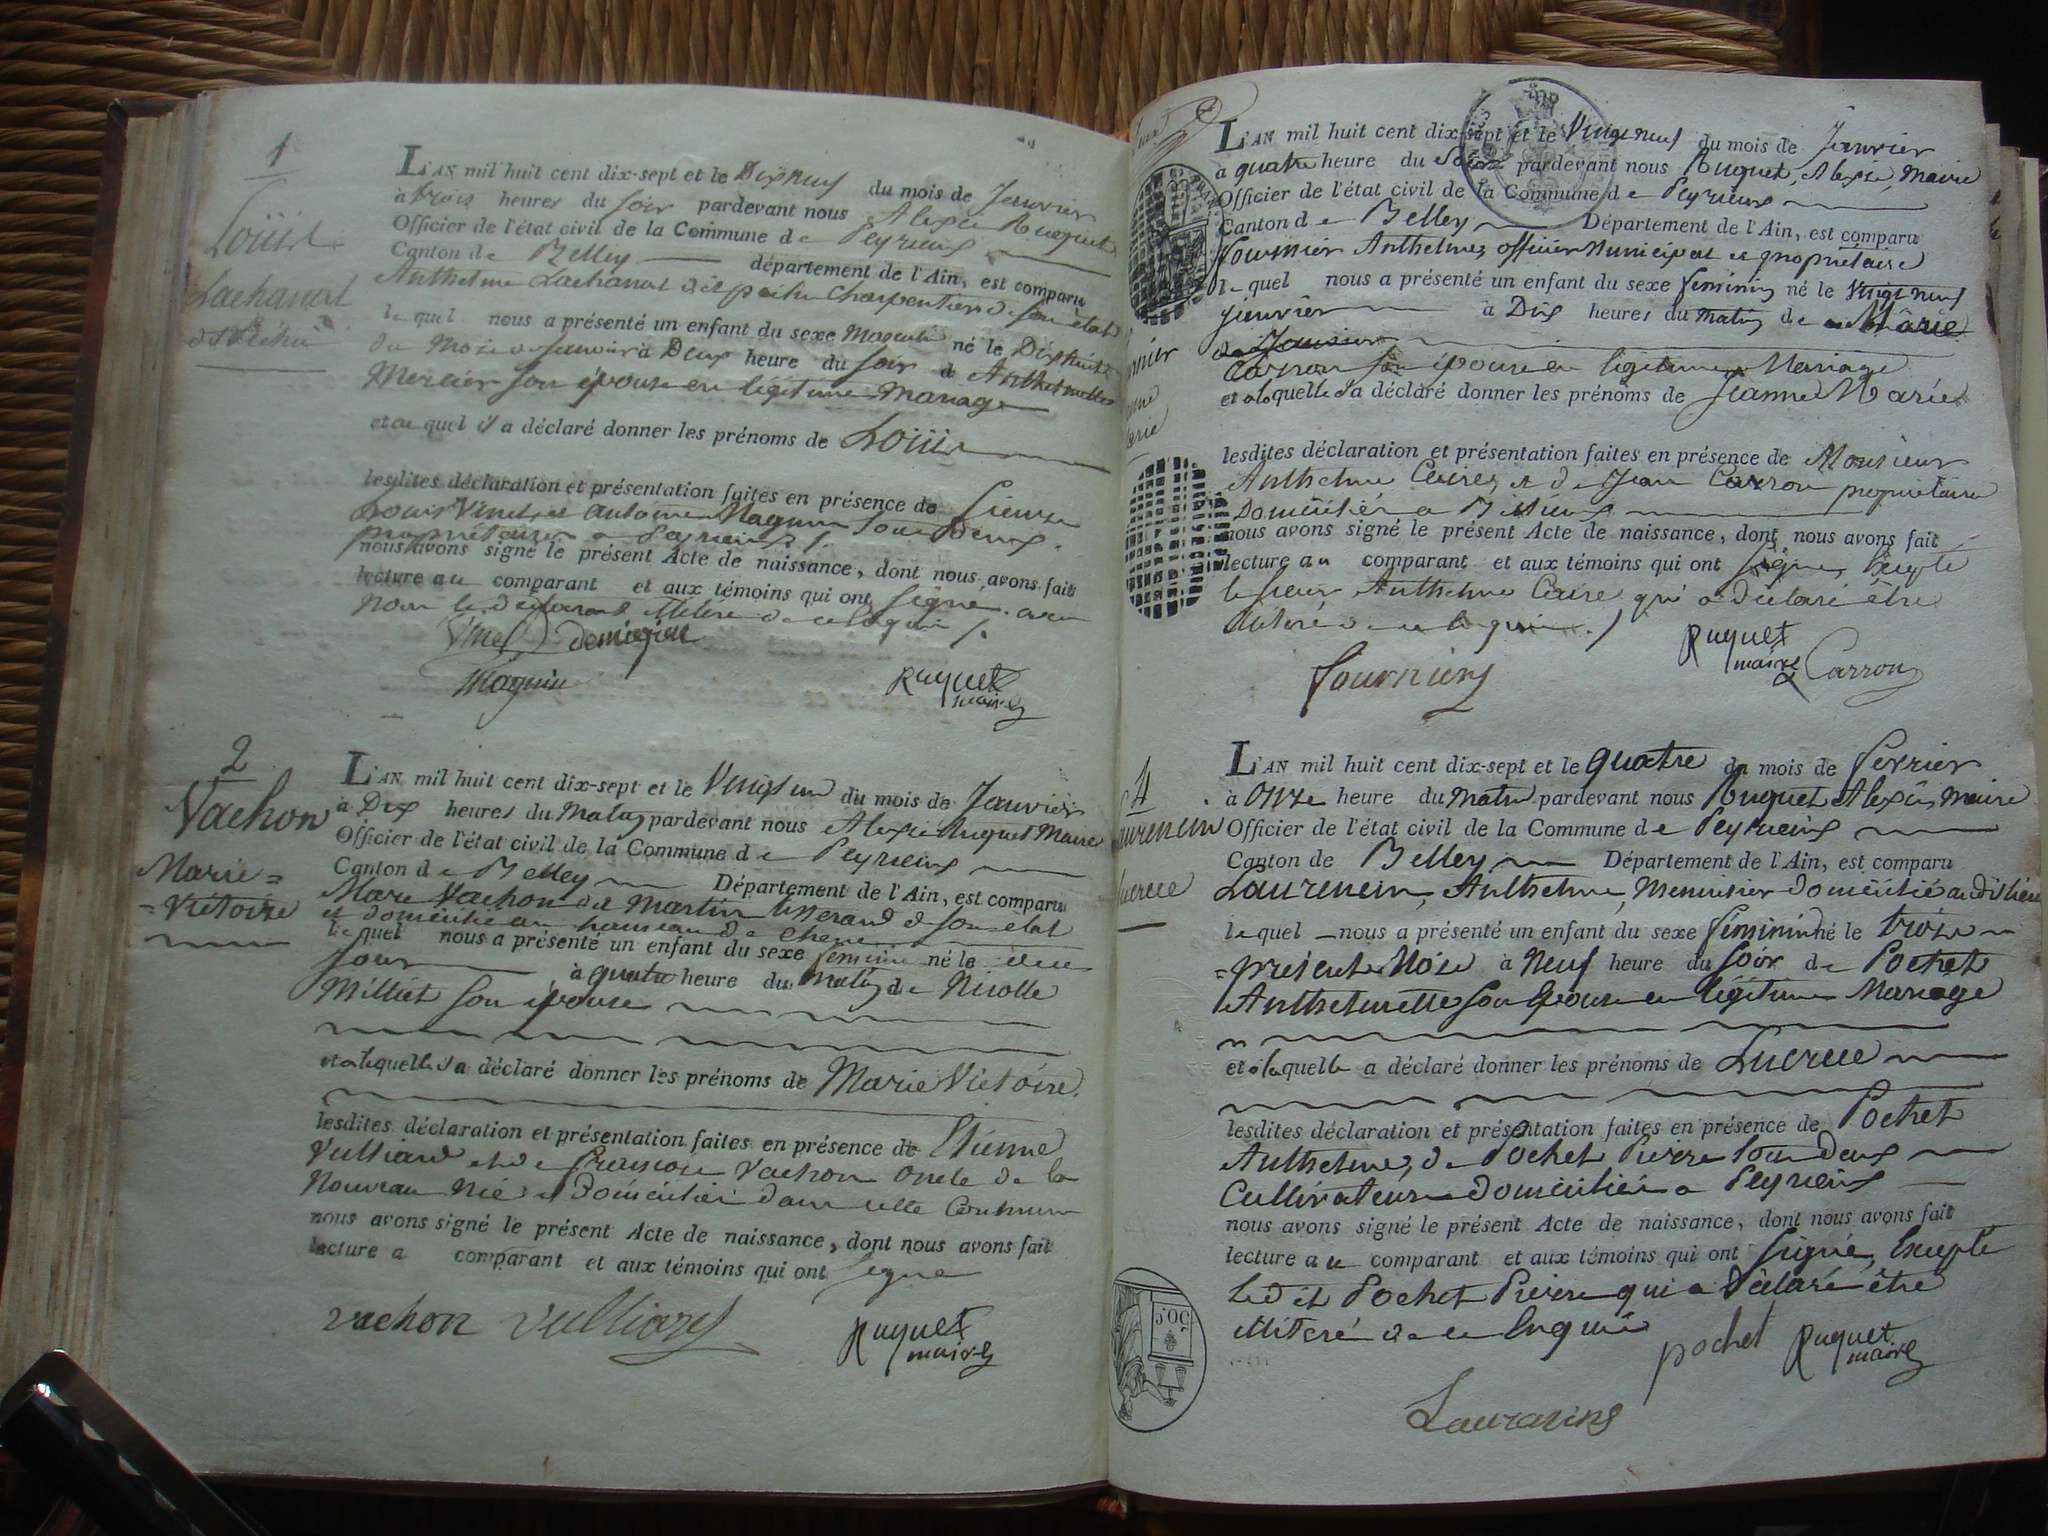 1
Louis
Lachanal
décédé
L'AN mil huit cent dix-sept et le Dix neuf du mois de Janvier
à trois heures du soir pardevant nous Alexis Ruquet
Officier de l'état civil de la Commune de Peyrieux
Canton de Belley département de l'Ain, est comparu
Anthelme Lachanal dit petit Charpentier de son état
lequel nous a présenté un enfant du sexe Masculin né le Dix huit
du Mois de Janvier à Deux heure du soir de Anthelmette
Mercier son épouse en légitime Mariage
et auquel il a déclaré donner les prénoms de Louis
lesdites déclaration et présentation faites en présence de Sieurs
Louis Vinet, et Antoine Magnin tous Deux
propriétaires a Peyrieux
nous avons signé le présent Acte de naissance, dont nous avons fait
lecture au comparant et aux témoins qui ont signé avec
nous le déclarant illitéré de ce enquis
Vinet
Magnin Ruquet
maire
2
Vachon
Marie=
=Victoire
L'AN mil huit cent dix-sept et le Vingt un du mois de Janvier
à Dix heures du Matin pardevant nous Alexis Ruquet Maire
Officier de l'état civil de la Commune de Peyrieux
Canton de Belley Département de l'Ain, est comparu
Marc Vachon dit Martin tisserand de son état
et domicilié au hameau de
lequel nous a présenté un enfant du sexe feminin né le
jour à quatre heure du Matin de Nicolle
Milliet son épouse
et a laquelle il a déclaré donner les prénoms de Marie Victoire.
lesdites déclaration et présentation faites en présence de Etienne
Vulliard et de François Vachon oncle de la
Nouveau Née et domiciliés dans cette Commune
nous avons signé le présent Acte de naissance, dont nous avons fait
lecture a comparant et aux témoins qui ont signé
Vachon Vulliard Ruquet
maire
L'AN mil huit cent dix-sept et le Vingt neuf du mois de Janvier
à quatre heure du Soir pardevant nous Ruquet, Alexis, Maire
Officier de l'état civil de la Commune de Peyrieux
Canton de Belley Département de l'Ain, est comparu
Fournier Anthelme, officier Municipal et propriétaire
lequel nous a présenté un enfant du sexe feminin né le Vingt neuf
janvier à Dix heures du matin de Marie
Carron son épouse en légitime Mariage
et a laquelle il a déclaré donner les prénoms de Jeanne Marie
lesdites déclaration et présentation faites en présence de Monsieur
Anthelme Caire, et de Jean Carron propriétaire
Domicilié a
nous avons signé le présent Acte de naissance, dont nous avons fait
lecture au comparant et aux témoins qui ont signé, Excepté
le sieur Anthelme Caire qui a déclaré être
illitéré de ce enquis
Fournier Ruquet
maire Carron
4
Laurencin
Lucrece
L'AN mil huit cent dix-sept et le quatre du mois de Fevrier
à Onze heure du Matin pardevant nous Ruquet Alexis, maire
Officier de l'état civil de la Commune de Peyrieux
Canton de Belley Département de l'Ain, est comparu
Laurencin, Anthelme, Menuisier domicilié au dit lieu
lequel nous a présenté un enfant du sexe féminin né le trois
=présent Mois à Neuf heure du soir de Pochet
Anthelmette son Epouse en légitime Mariage
et a laquelle a déclaré donner les prénoms de Lucrece
lesdites déclaration et présentation faites en présence de Pochet
Anthelme, de Pochet Pierre tous Deux
Cultivateurs domiciliés a Peyrieux
nous avons signé le présent Acte de naissance, dont nous avons fait
lecture au comparant et aux témoins qui ont signé, Excepté
ledit Pochet Pierre qui a déclaré être
illiteré de ce Enquis
pochet Ruquet
maire
Laurancins
50 C